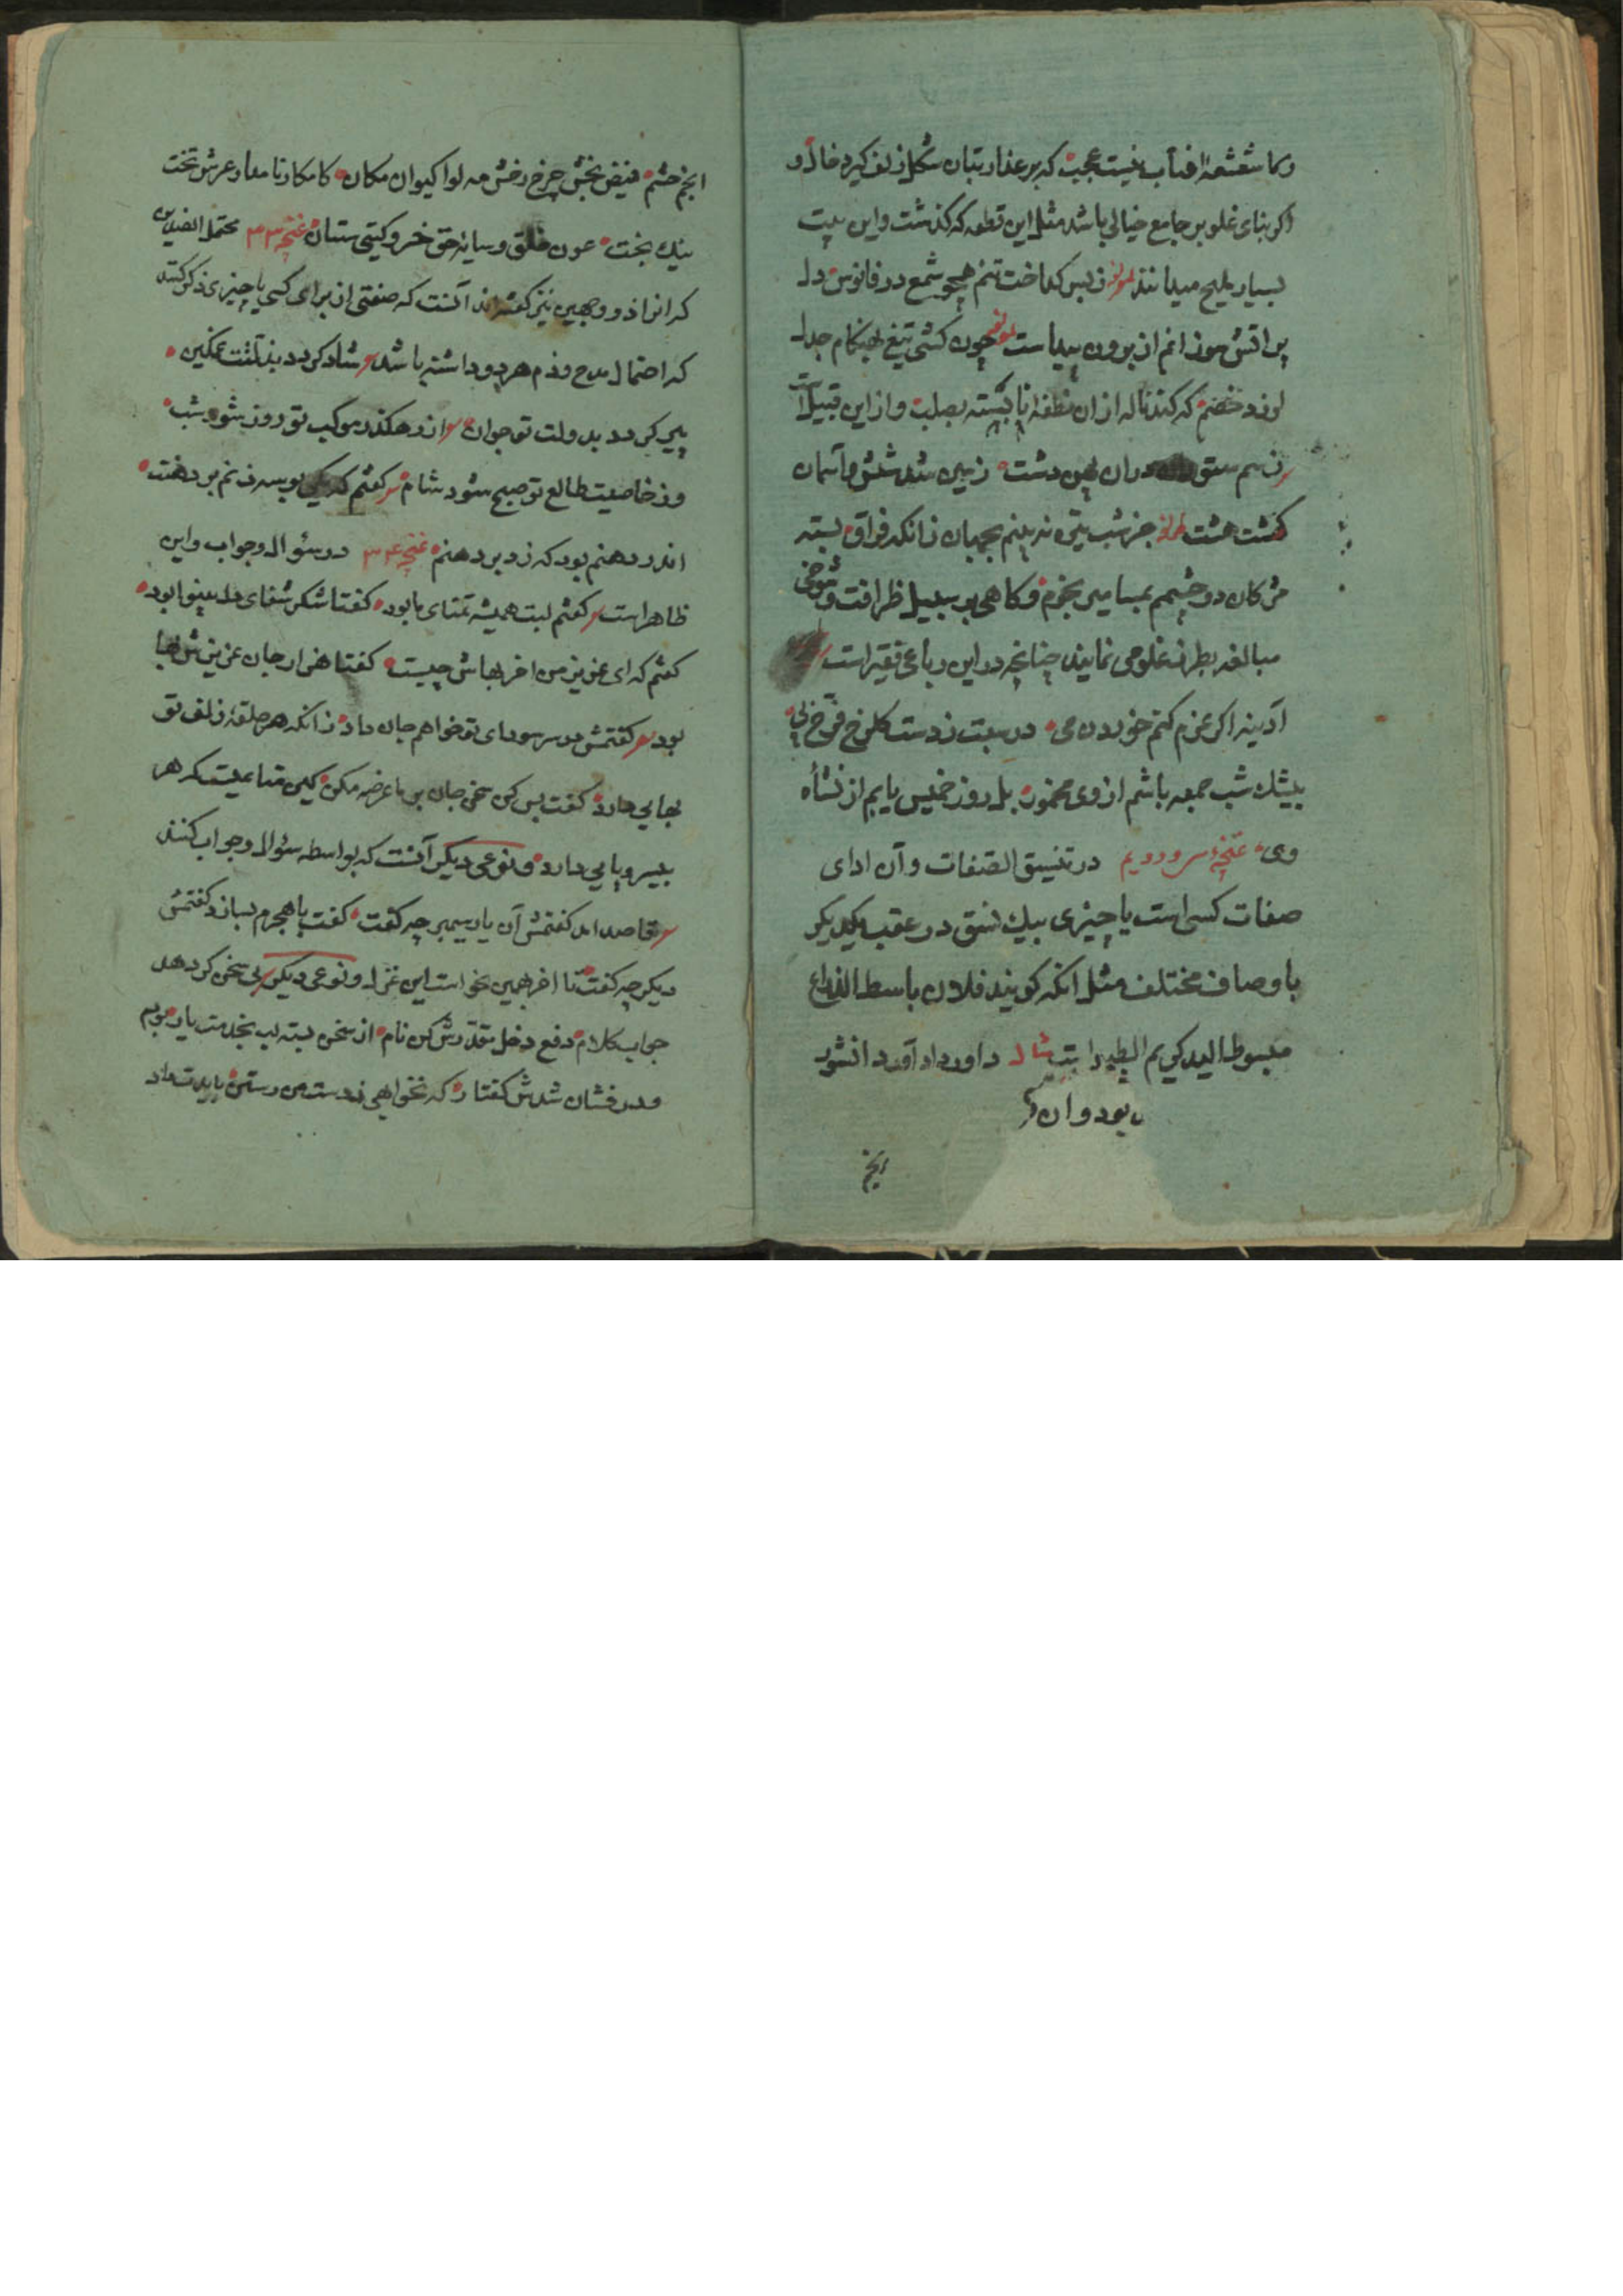 وکا شعشعهٔ افتاب نیست عجبت که بر عذار بتان شکل زلف کیرد خال و
اکر بنای غلو بر جامع خیالی باشد مثل این قطعه که کذشت و این بیت
بسیار ملیح میدانند لمولفه ز بس کداخت تنم همچو شمع در فانوس دل
پر اتش سوزانم از برون پیداست لمولفه چون کشی تیغ بهنکام جدل
لرزد خصم که کند ناله ازان نطفهٔ نابسته بصلب و از این قبیل است
ز سم ستوران دران پهن دشت زمین شد شش و آسمان
کشت هشت لمولفه جز شب تیره نه بینم بجهان زانکه فراق بسته
مژکان دو چشمم بمسامیر بخرم و کاهی بر سبیل ظرافت و شوخی
مبالغه بطرف غلو می نمایند چنانچه در این رباعی فقیر است
آدینه اکر عزم کنم خوردن می در سبت ز دست کلرخ فرخ پی
بیشک شب جمعه باشم از وی مخمور بل روز خمیس یابم از نشأه
وی غنچهٔ سی و دویم در تنسیق الصفات و آن ادای
صفات کسی است یا چیزی بیک نسق در عقب یکدیکر
باوصاف مختلف مثل انکه کویند فلان باسط الذراع
مبسوط الید کریم الطبع را بتب مثال داور داد آور دانشور
بود و ان
انجم
انجم حشم فیض بخش چرخ رخش مه لوا کیوان مکان کامکار نامدار عرش تخت
نیک بخت عون خلق و سایهٔ حق خسرو کیتی ستان غنچهٔ ۳۳ محتمل الضدین
که انرا ذو وجهین نیز کفته اند آنست که صفتی از برای کسی یا چیزی ذکر کنند
که احتمال مدح و ذم هر دو داشته باشد شاد کردد بد آنت غمکین
پیر کردد بدولت تو جوان از رهکذر موکب تو روز شود شب
وز خاصیت طالع تو صبح شود شام کفتم که یکی بوسه زنم بر دهنت
اندر دهنم بود که زد بر دهنم غنچهٔ ۳۴ در سئوال و جواب و این
ظاهر است کفتم لبت همیشه تمنای ما بود کفتا شکر شفای دل بینوا بود
کفتم که ای عزیز من اخر بهاش چیست کفتا هزار جان عزیزش بها
بود کفتمش در سر سودای تو خواهم جان داد زانکه هر حلقهٔ زلف تو
بجایی دارد کفت بس کن سخن جان بر ما عرضه مکن کین متاعیست که هر
بیسر و پایی دارد و نوعی دیکر آنست که بواسطه سئوال و جواب کنند
قاصد امد کفتمش آن یار سیمبر چه کفت کفت با هجرم بساز و کفتمش
دیکر چه کفت تا اخر همین نحو است این غزل و نوعی دیکر بی سخن کر دهد
جواب کلام دفع دخل مقدرش کن نام از سخن بسته لب بخدمت یار بودم
و درفشان شدش کفتار که نخواهی ز دست من رستن بایدت داد